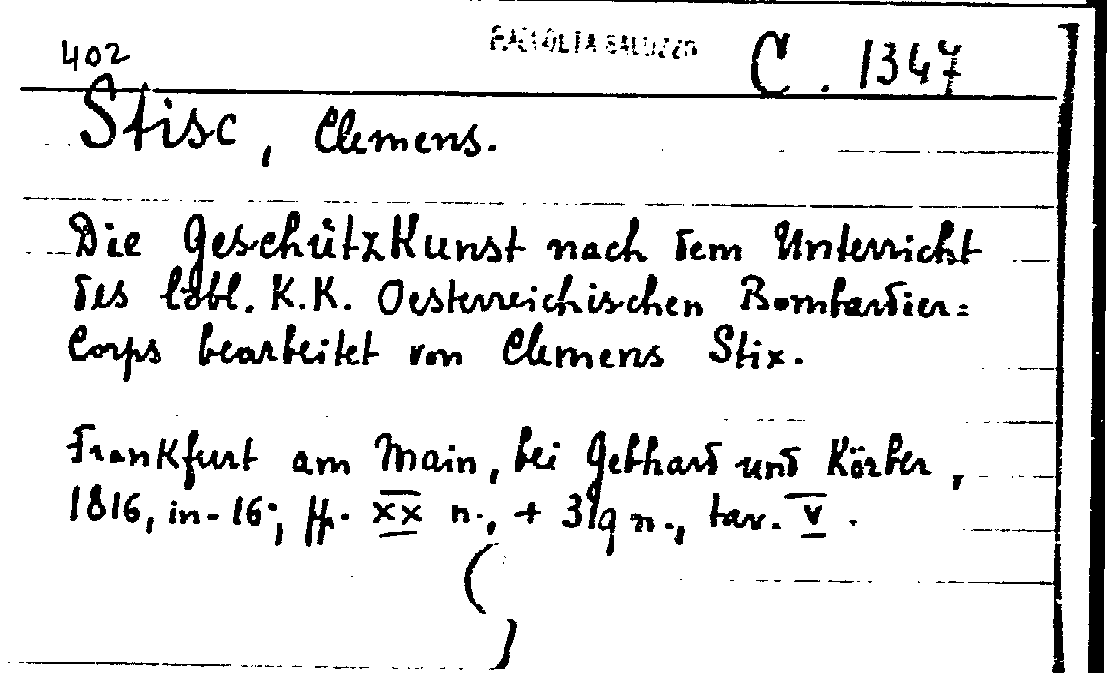 402 RACCOLTA SALUZZO C. 1347
Stisc, Clemens.
Die Geschützkunst nach dem Unterricht
des löbl. K.K. Oesterreichischen Bombardier=
Corps bearbeitet von Clemens Stix.
Frankfurt am Main, bei Gebhard und Körber,
1816, in-16°, ff. XX n., + 319 n., tav. V.